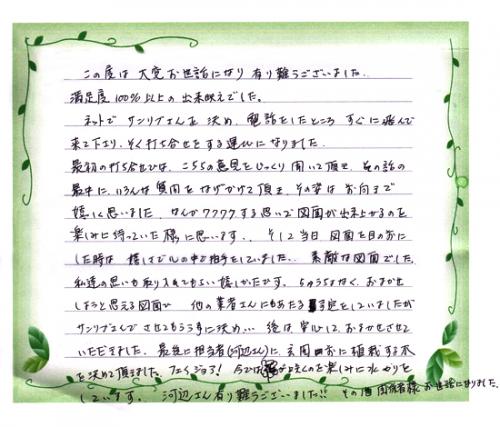 この度は 大変お世話になり 有り難うございました。
満足度100%以上の出来映えでした。
ネットで サンリブさんを 決め、電話をしたところ すぐに 飛んで
来て下さり、そく打ち合せをする運びになりました。
最初の打ち合せでは、こちらの意見をじっくり聞いて頂き、その話の
最中に、いろんな質問をなげかけて頂き、その姿は お向まで
嬉しく思いました。なんかワクワクする思いで図面が出来上がるのを
楽しみに待っていた様に思います。そして当日 図面を目の前に
した時は 嬉しさで心の中で拍手をしていました。素敵な図面でした。
私達の思いも取り入れてもらい嬉しかったです。ちゅうちょなく、おまかせ
しようと思える図面で 他の業者さんにもあたる予定をしていましたが
サンリブさんで させてもらう事に決め… 後は 安心して、おまかせさせて
いただきました。最後に担当者(河辺さん)に、玄関前に植栽する木
を決めて頂きました。 今では が咲くのを楽しみに水やりを
しています。 河辺さん有り難うございました!! その他 関係者様 お世話になりました。